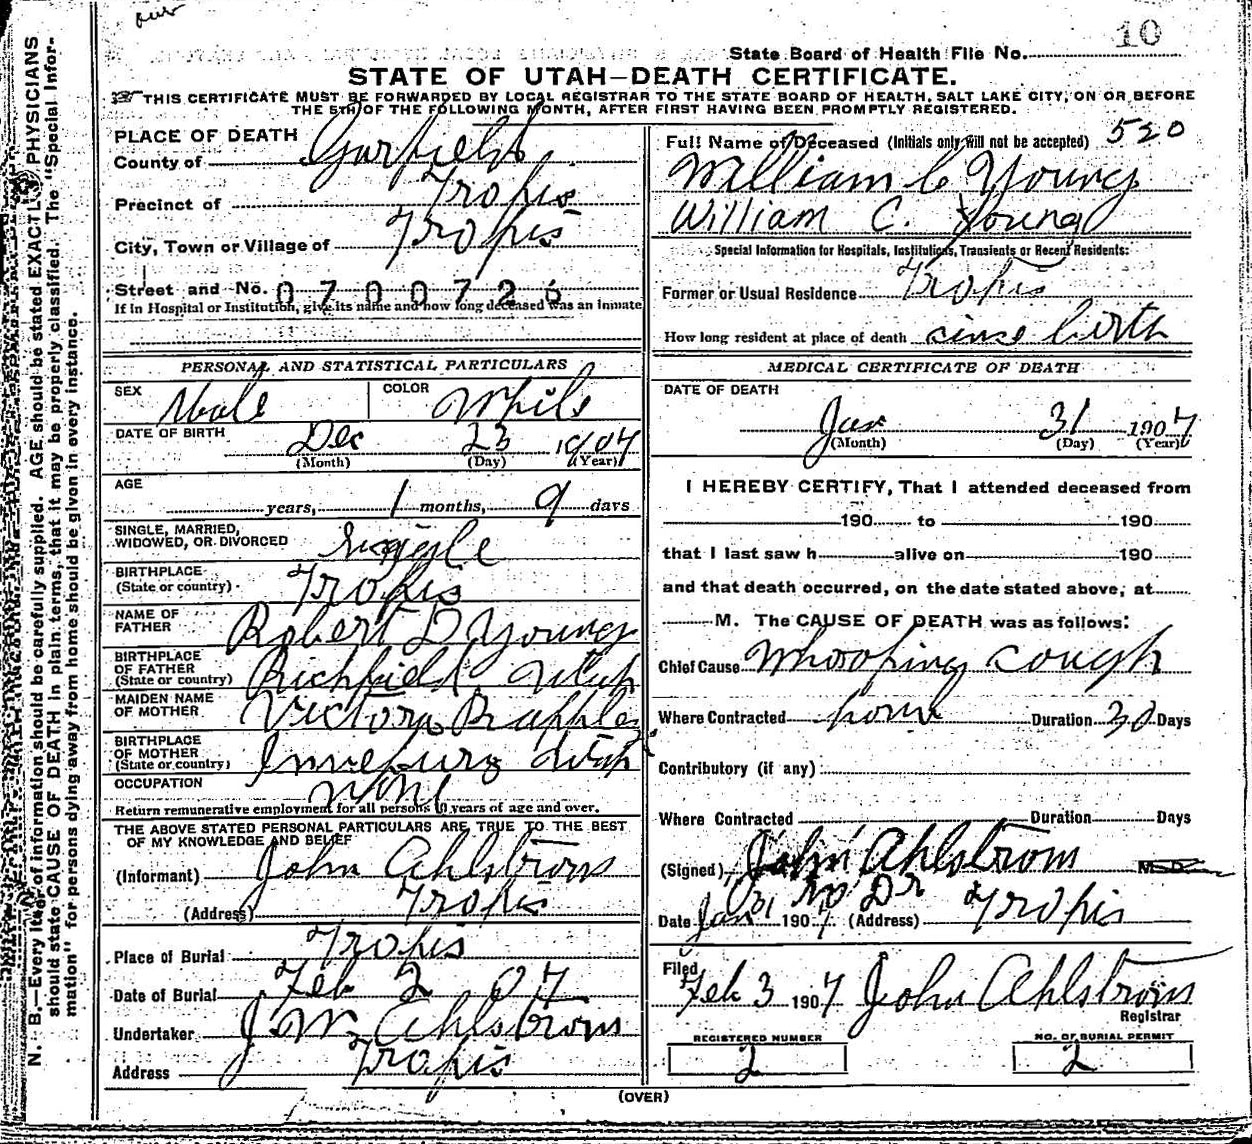 10
State Board of Health File No.
STATE OF UTAH—DEATH CERTIFICATE.
THIS CERTIFICATE MUST BE FORWARDED BY LOCAL REGISTRAR TO THE STATE BOARD OF HEALTH, SALT LAKE CITY, ON OR BEFORE
THE 5TH OF THE FOLLOWING MONTH, AFTER FIRST HAVING BEEN PROMPTLY REGISTERED.
N. B.—Every item of information should be carefully supplied. AGE should be stated EXACTLY. PHYSICIANS
should state CAUSE OF DEATH in plain terms, that it may be properly classified. The "Special Infor-
mation" for persons dying away from home should be given in every instance.
PLACE OF DEATH
County of Garfield
Precinct of Tropic
City, Town or Village of Tropic
Street and No. 0700726
If in Hospital or Institution, give its name and how long deceased was an inmate
PERSONAL AND STATISTICAL PARTICULARS
SEX Male COLOR White
DATE OF BIRTH Dec 23
(Month) (Day) (Year)
AGE years, 1 months, 9 days
SINGLE, MARRIED,
WIDOWED, OR DIVORCED Single
BIRTHPLACE
(State or country) Tropic
NAME OF
FATHER Robert D Young
BIRTHPLACE
OF FATHER
(State or country) Richfield Utah
MAIDEN NAME
OF MOTHER Victory
BIRTHPLACE
OF MOTHER
(State or country) Utah
OCCUPATION None
Return remunerative employment for all persons 10 years of age and over.
THE ABOVE STATED PERSONAL PARTICULARS ARE TRUE TO THE BEST
OF MY KNOWLEDGE AND BELIEF
(Informant) John Ahlstrom
(Address) Tropic
Place of Burial Tropic
Date of Burial Feb 2 07
Undertaker J. W. Ahlstrom
Address Tropic
Full Name of Deceased (Initials only will not be accepted) 520
William C Young
William C. Young
Special Information for Hospitals, Institutions, Transients or Recent Residents:
Former or Usual Residence Tropic
How long resident at place of death since birth
MEDICAL CERTIFICATE OF DEATH
DATE OF DEATH
Jan 31 1907
(Month) (Day) (Year)
I HEREBY CERTIFY, That I attended deceased from
190 to 190
that I last saw h alive on 190
and that death occurred, on the date stated above, at
M. The CAUSE OF DEATH was as follows:
Chief Cause Whooping cough
Where Contracted home Duration 30 Days
Contributory (if any)
Where Contracted Duration Days
(Signed) John Ahlstrom M.D.
No Dr
Date Jan 31 1907 (Address) Tropic
Filed
Feb 3 1907 John Ahlstrom
Registrar
REGISTERED NUMBER
2
NO. OF BURIAL PERMIT
2
(OVER)